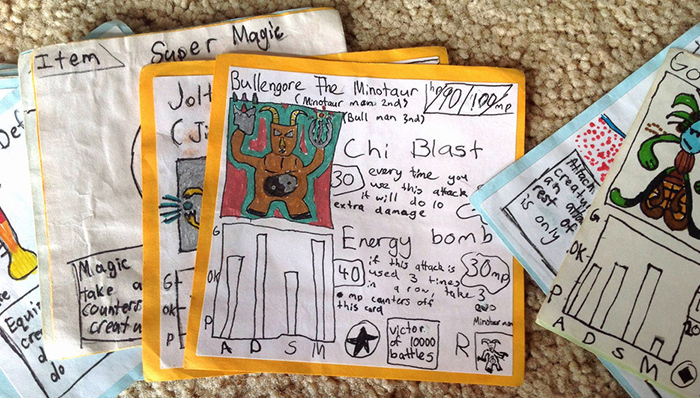 Def
Equi
cre
d
do
Item
Super Magic
Magic
take a
counters
creatu
Jolt
(Ji
G
OK
P
Bullengore The Minotaur
(Minotaur man 2nd)
(Bull man 3nd)
hp 90/100 mp
Chi Blast
30
every time you
use this attack
it will do 10
extra damage
Energy bomb
40
if this attack is
used 3 times
in a row take 3
mp counters off
this card
30mp
G
OK
P
A D S M
victor
of 10000
battles
R
Minotaur man
Attach
creatu
an atta
rest of
is only
Go
G
OK
P
A D S M